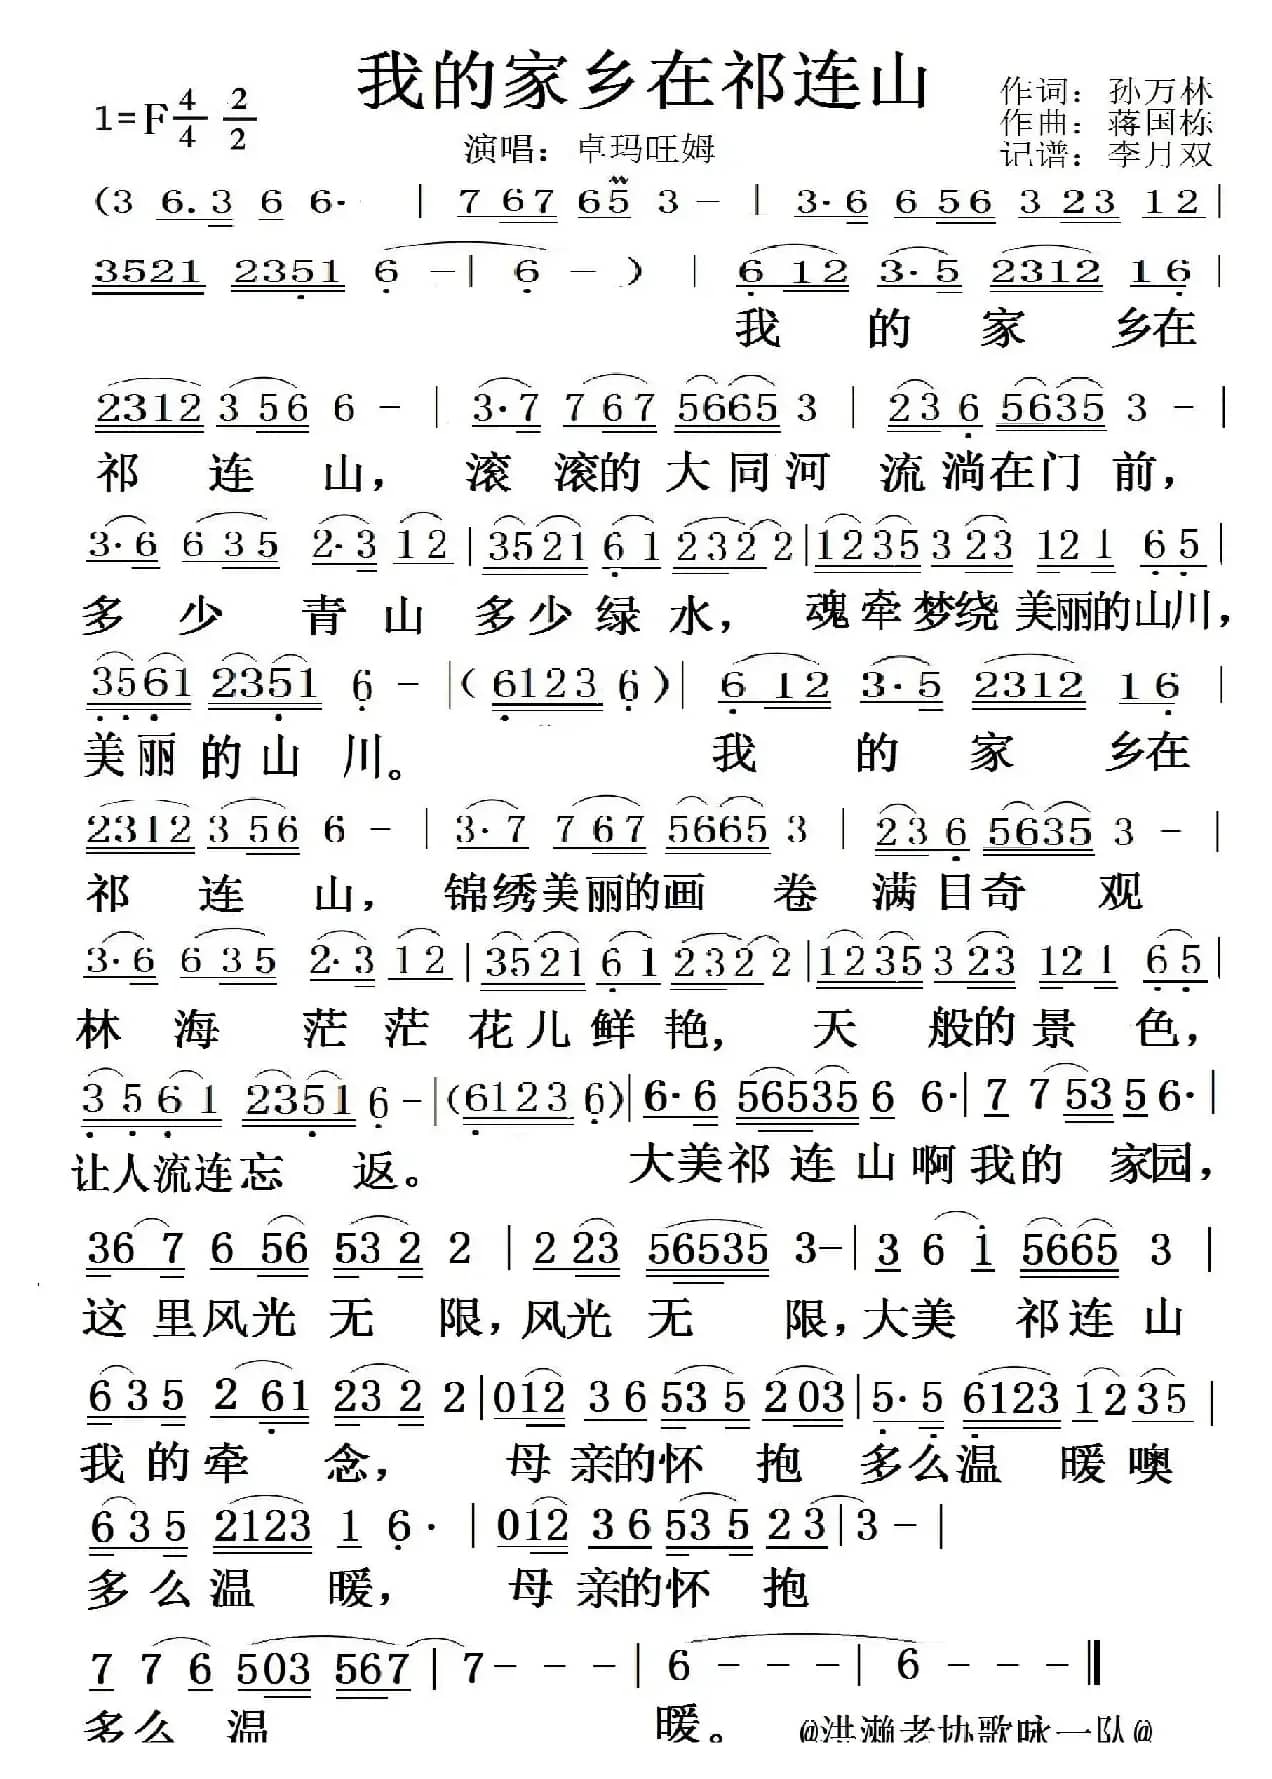 我的家乡在祁连山
1=F 4/4 2/2
作词：孙万林
作曲：蒋国栋
演唱：卓玛旺姆
记谱：李月双
(3 6.3 6 6· | 7 67 65 3 - | 3·6 6 56 3 23 12 |
3521 2351 6 - | 6 - ) | 6 12 3·5 2312 16 |
我 的 家 乡在
2312 3 56 6 - | 3·7 7 67 5665 3 | 23 6 5635 3 - |
祁 连 山， 滚 滚的 大 同河 流淌在门 前，
3·6 6 35 2·3 12 | 3521 61 2322 | 1235 3 23 12 1 65 |
多 少 青 山 多少 绿 水， 魂牵梦绕 美丽的山川，
3561 2351 6 - | (6123 6) | 6 12 3·5 2312 16 |
美丽的山 川。 我 的 家 乡在
2312 3 56 6 - | 3·7 7 67 5665 3 | 23 6 5635 3 - |
祁 连 山， 锦绣美丽的画 卷 满 目奇 观
3·6 6 35 2·3 12 | 3521 61 2322 | 1235 3 23 12 1 65 |
林 海 茫茫 花儿鲜 艳， 天 般的景 色，
3561 2351 6 - | (6123 6) | 6·6 56535 6 6· | 7 7 53 5 6· |
让人流连忘 返。 大美祁 连 山啊我的 家园，
36 7 6 56 53 2 2 | 2 23 56535 3 - | 3 6 1 5665 3 |
这 里风光 无 限，风光 无 限，大美 祁连山
6 35 2 61 23 2 2 | 012 36 53 5 2 03 | 5·5 6123 12 35 |
我 的牵 念， 母 亲的怀 抱 多么温 暖噢
6 35 2123 1 6· | 012 36 53 5 23 | 3 - |
多么温 暖， 母 亲的怀 抱
7 7 6 503 567 | 7 - - - | 6 - - - | 6 - - - ‖
多么 温 暖。 @洪濑老协歌咏一队@